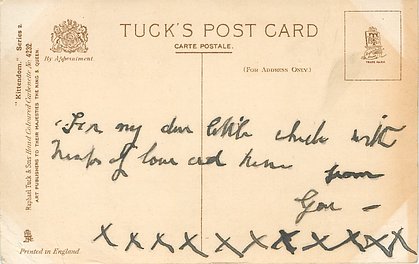 TUCK'S POST CARD
CARTE POSTALE.
By Appointment
(FOR ADDRESS ONLY.)
TRADE MARK
"Kittendom." Series 2.
Raphael Tuck & Sons Hand Coloured Carbonette No. 4232
ART PUBLISHERS TO THEIR MAJESTIES THE KING & QUEEN
For my dear little chick with
heaps of love and from
X X X X X X X X X X X
Printed in England